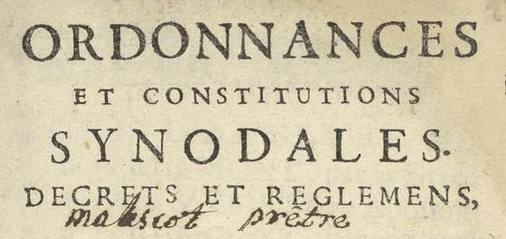 ORDONNANCES
ET CONSTITUTIONS
SYNODALES.
DECRETS ET REGLEMENS,
prêtre